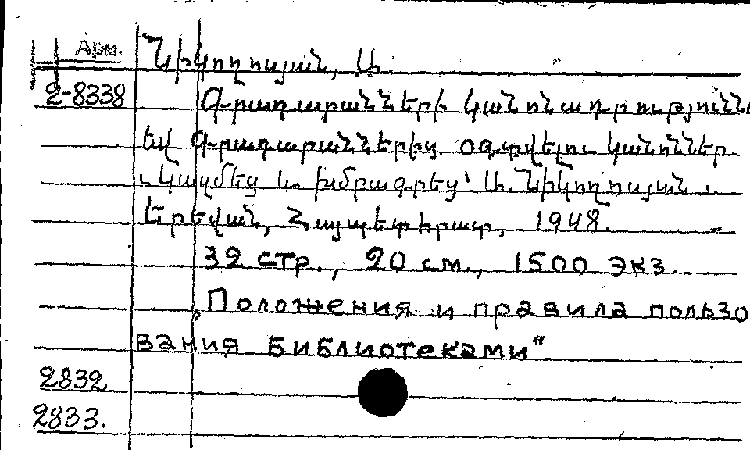 Арм. Նիկողոսյան, Ա.
2-8338 Գրադարանների կանոնադրությունն
եվ գրադարաններից օգտվելու կանոններ.
Կազմեց և խմբագրեց՝ Ա. Նիկողոսյան.
Երեվան, Հայպետհրատ, 1948.
32 стр., 20 см., 1500 экз.
„Положения и правила пользо
вания библиотеками"
2832
2833.